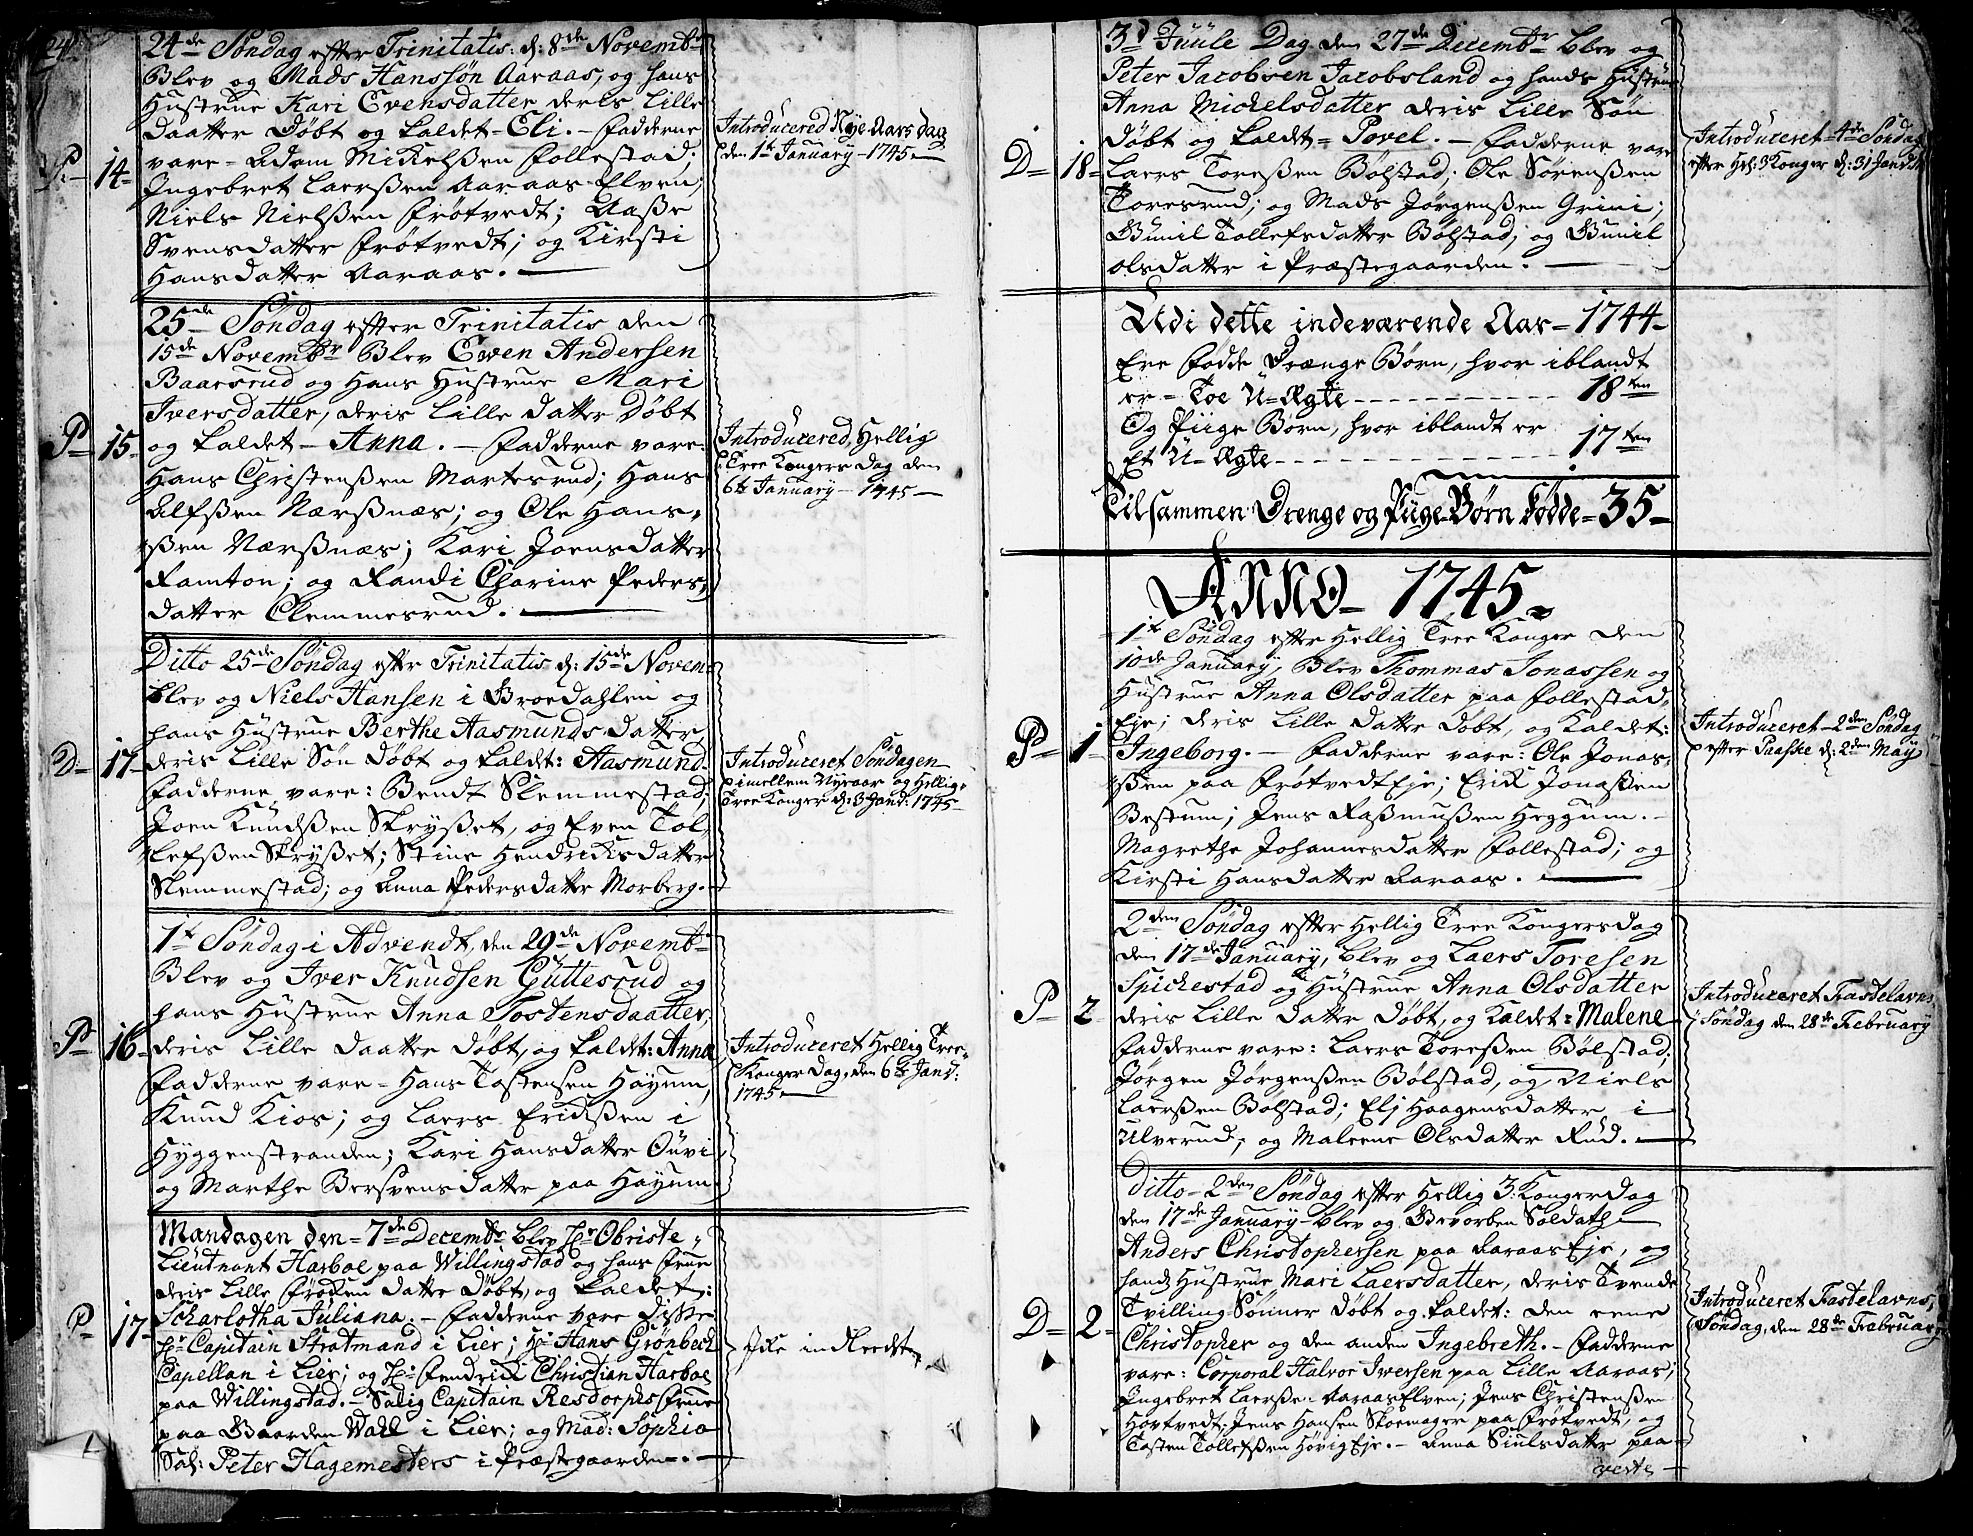 24de Søndag efter Trinitatis. d: 8de Novembr
Blev og Mads Hanssøn Aaraas, og hans
Hustrue Kari Evensdatter deris Lille
Daatter Døbt og kaldet - Eli. - Fadderne
P. 14. vare - Adam Mickelsßen Follestad;
Ingebret Laersßen Aaraas Elven;
Niels Nielsßen Frøtvedt; Aaße
Svensdatter Frøtvedt; og Kirsti
Hansdatter Aaraas.
Introducered Nye-Aars dag
den 1te January - 1745
25de Søndag efter Trinitatis den
15de Novembr Blev Ewen Andersen
Baarsrud og Hans Hustrue Mari
Iversdatter, deris Lille Datter Døbt
P 15. og kaldet - Anna. - Fadderne vare:
Hans Christensßen Martesrud; Hans
Alfsßen Nærßnæs; og Ole Hans-
ßen Nærßnæs; Kari Joensdatter
Ramton; og Randi Charine Peders-
datter Clemmesrud.
Introducered, Hellig
Tree Kongers Dag den
6te January - 1745
Ditto 25de Søndag efter Trinitatis d: 15de Novem
blev og Niels Hansen i Broedahlen og
hans Hustrue Berthe Aasmunds datter,
D 17. deris Lille Søn Døbt og kaldet: Aasmund.
Fadderne vare: Bendt Slemmestad;
Joen Knudsßen Skryßet, og Even Tol-
lefsßen Skryßet; Stine Hendrichsdatter
Slemmestad; og Anna Pedersdatter Morberg.
Introduceret Søndagen
imellem Nyeaar og Hellig-
Tree Konger d: 3 Janu: 1745
1te Søndag i Advendt, den 29de Novembr
Blev og Iver Knudsen Guttesrud og
hans Hustrue Anna Tostensdaatter,
P 16. deris Lille Daatter Døbt, og kaldet: Anna
Fadderne vare - Hans Tostensen Høyum,
Knud Kios; og Laers Erichsßen i
Hyggenstranden; Kari Hansdatter Ouvi
og Marthe Bersvensdatter paa Høyum.
Introduceret Hellig Tree
Konger Dag, den 6te Janu:
1745
Mandagen den 7de Decembr blev Hr Obriste
Lieutnant Harboe paa Willingstad og hans Frue
deris Lille Frøken Datter Døbt, og kaldet:
Scharlotha Juliana. - Fadderne vare Disße
P 17. Hr Capitain Stratmand i Lier; Hr Hans Grønbech
Capellan i Lier; og Hr Fendrick Christian Harboe
paa Willingstad. - Salig Capitain Resdorphs Frue
paa Gaarden Wall i Lier; og Mad: Sophia
Sal: Peter Hagemesters i Præstegaarden.
Icke indleedt
3d Juule Dag den 27de Decembr blev og
Peter Jacobsen Jacobsland og hands Hustrue
Anna Michelsdatter deris Lille Søn
Døbt og kaldet = Povel. - Fadderne vare
D 18. Laers Toresßen Bølstad; Ole Sørensßen
Toresrud; og Mads Jørgensßen Grini;
Gunil Tollefsdatter Bølstad, og Gunil
olsdatter i Præstegaarden.
Introduceret 4de Søndag
efter Hel: 3 Konger d: 31 Janr
Udi dette indeværende Aar - 1744
Ere fødde Drænge Børn, hvor iblandt
er - Toe U-Ægte - 18ten
Og Piige Børn, hvor iblandt er
Et U-Ægte - 17ten
Tilsammen Drenge og Piige Børn fødde - 35
ANNO - 1745
1te Søndag efter Hellig Tree Konger den
10de January, Blev Thommas Jonassen og
Hustrue Anna Olsdatter paa Follestad
Eje; deris Lille Datter Døbt, og kaldet:
P 1 Ingeborg. - Fadderne vare: Ole Jonas-
ßen paa FrøtvedtEje; Erick Jonasßen
Bestum; Jens Rasßmusßen Heggum. -
Magrethe Johannesdatter Follestad; og
Kirsti Hansdatter Aaraas.
Introduceret 2den Søndag
efter Paaske d: 2den May
2den Søndag efter Hellig Tree Kongersdag
den 17de January, blev og Laers Toresen
Spichestad og Hustrue Anna Olsdatter
P 2 deris Lille Datter Døbt, og kaldet: Malene
Fadderne vare: Laers Toresßen Bølstad,
Jørgen Jørgensßen Bølstad, og Niels
Laersßen Bolstad; Elj Haagensdatter i
Ulverud; og Maleene Olsdatter Rud.
Introduceret Fastelavns
Søndag den 28de February
Ditto 2den Søndag efter Hellig 3 Konger Dag
den 17de January blev og Gevorben Soldath
Anders Christophersen paa AaraasEje, og
hands Hustrue Mari Laersdatter, deris Tvende
D 2 Tvilling Sønner Døbt og kaldet: den eene
Christopher og den anden Ingebreth. - Fadderne
vare: Corporal Halvor Iversen paa Lille Aaraas;
Ingebret Laersße: AaraasElven; Jens Christensßen
Høvtvedt; Jens Hansen Skoemager paa Frøtvedt, og
Tosten Tollefsßen HøvigEje. - Anna Siulsdatter paa
verte
Introduceret Fastelavns
Søndag, den 28de February